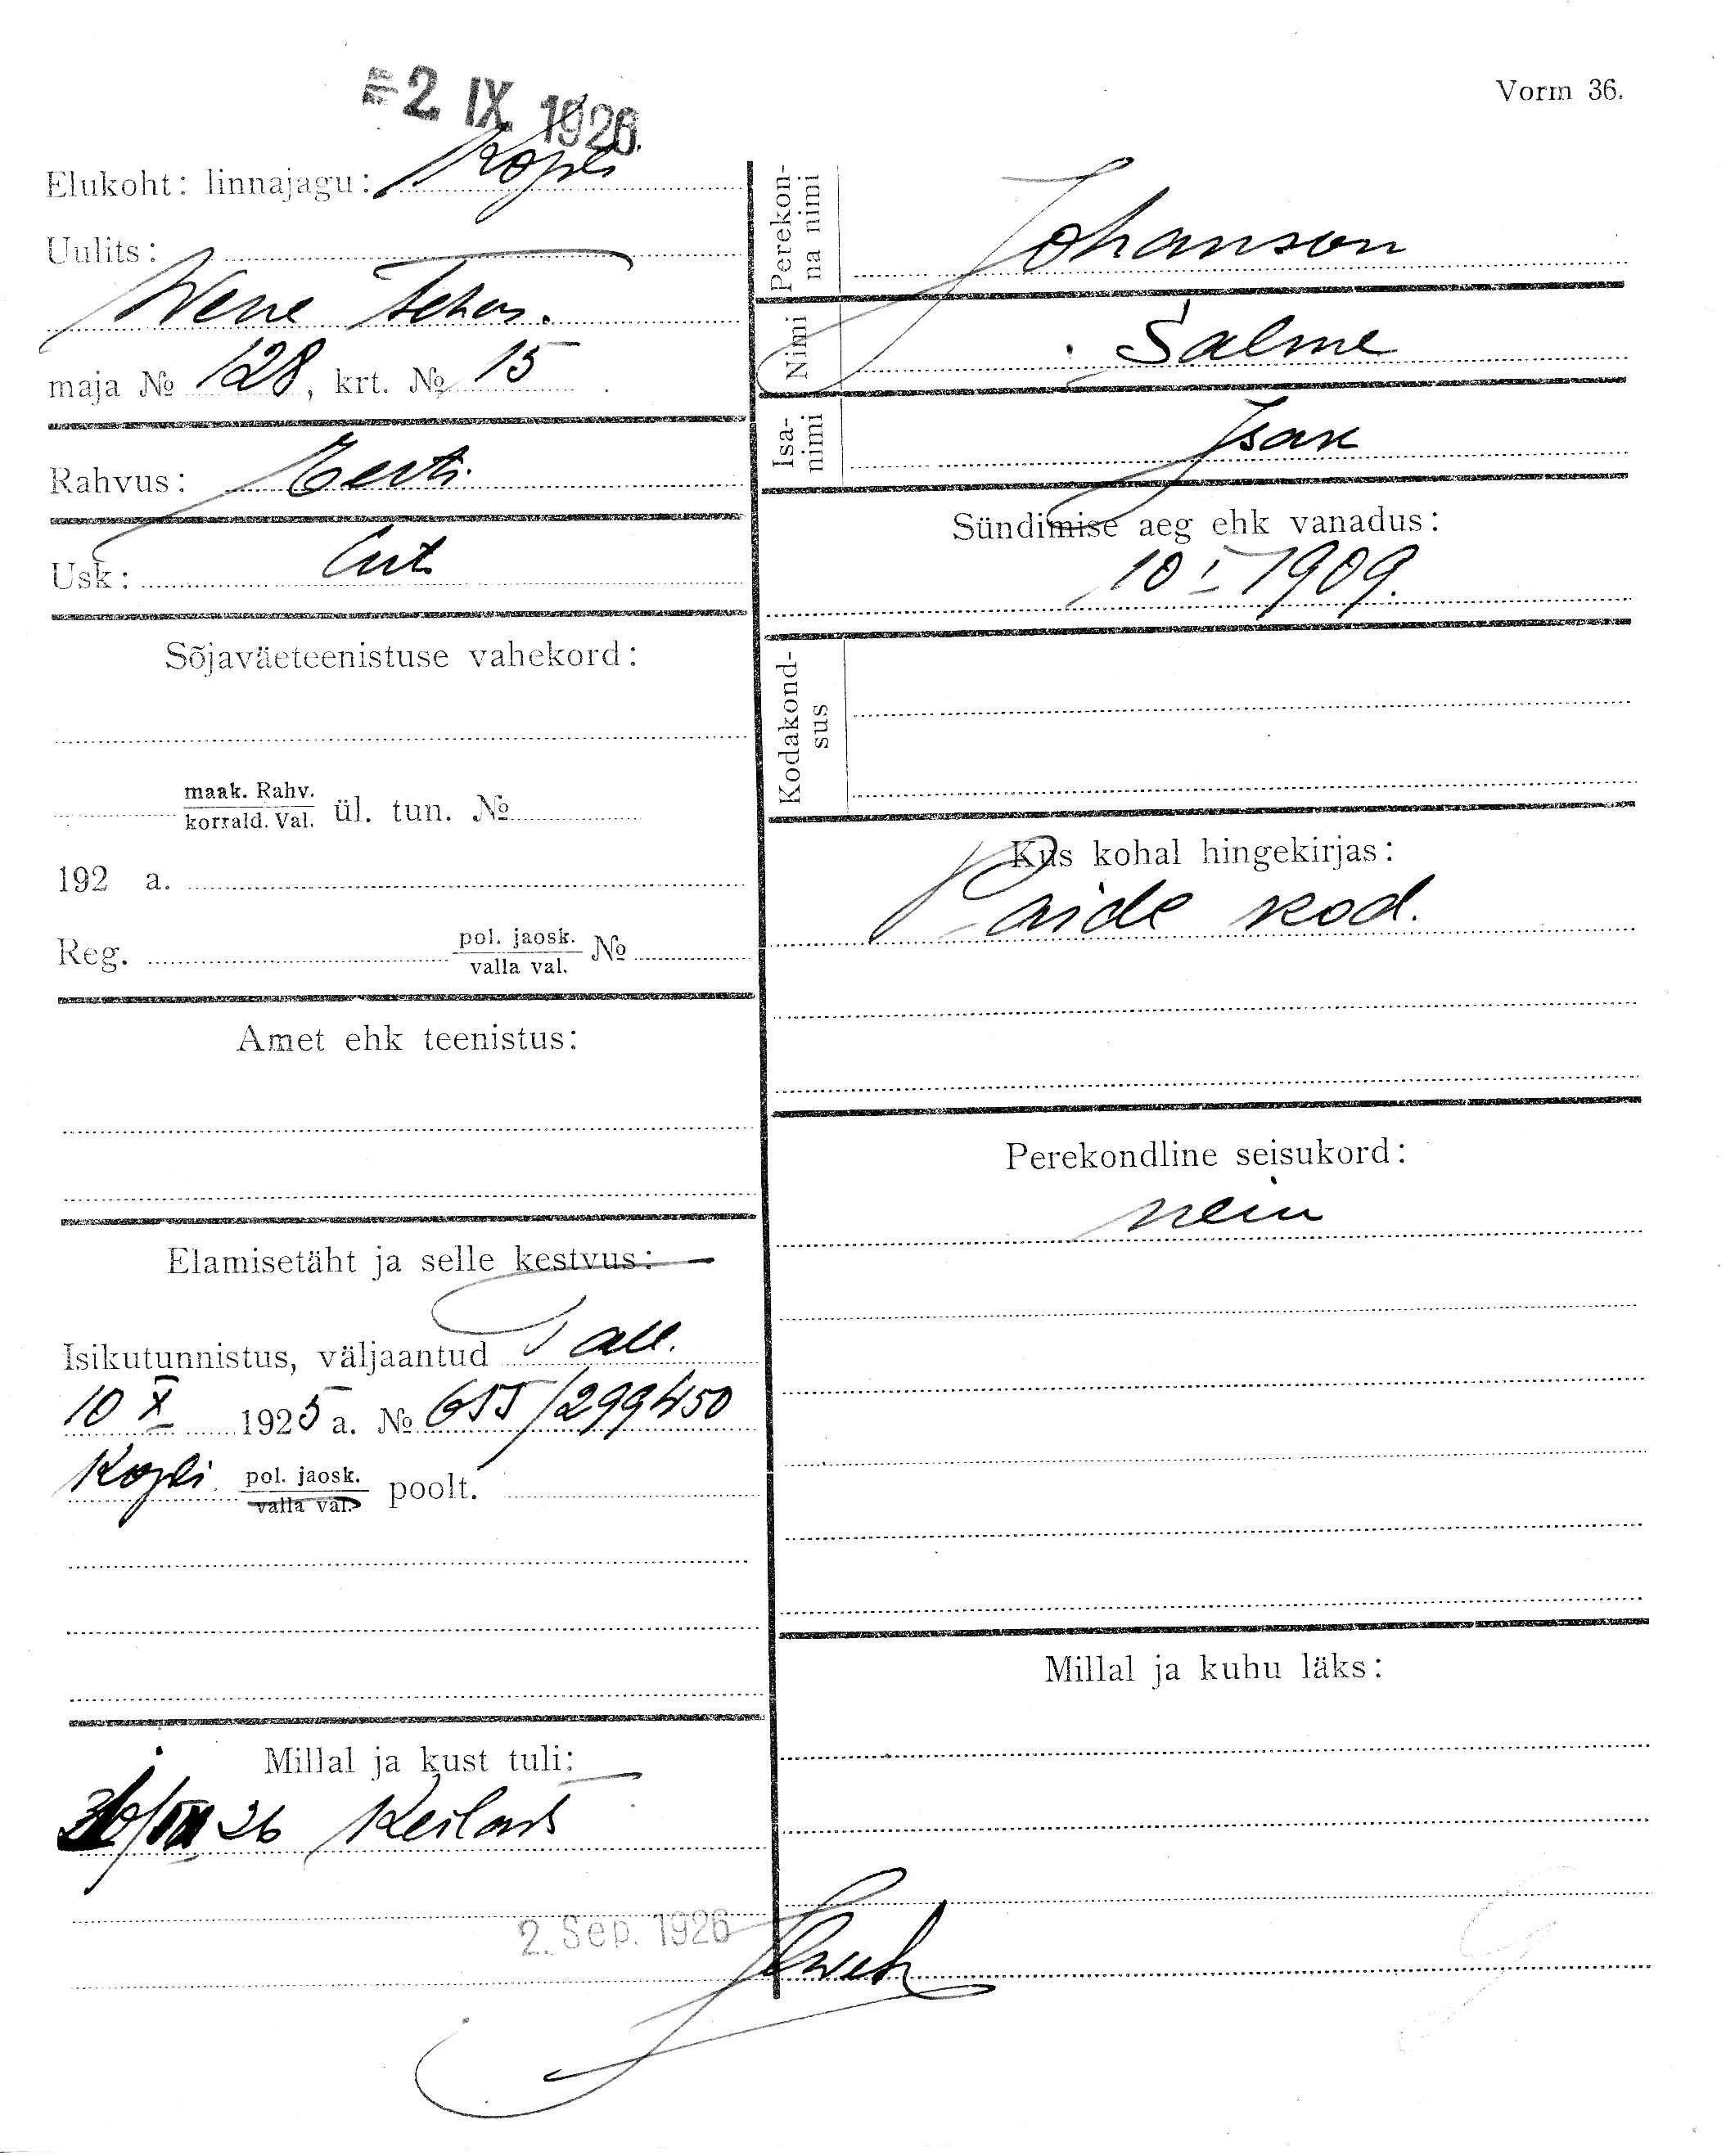 = 2 IX 1926.
Vorm 36.
Elukoht: linnajagu: Kopli
Uulits:
Wene Tehas.
maja № 128, krt. № 15.
Rahvus: Eesti
Usk: Lut.
Sõjaväeteenistuse vahekord:
maak. Rahv.
korrald. Val. ül. tun. №
192 a.
Reg. pol. jaosk. №
valla val.
Amet ehk teenistus:
Elamisetäht ja selle kestvus:
Isikutunnistus, väljaantud Tall.
10 X 1925 a. № 655/299450
Kopli pol. jaosk. poolt.
valla val.
Millal ja kust tuli:
26 Keilast
2. Sep. 1926
Perekon-
na nimi Johanson
Nimi Salme
Isa-
nimi Isak
Sündimise aeg ehk vanadus:
10 I 1909.
Kodakond-
sus
Kus kohal hingekirjas:
Paide kod.
Perekondline seisukord:
nein
Millal ja kuhu läks: